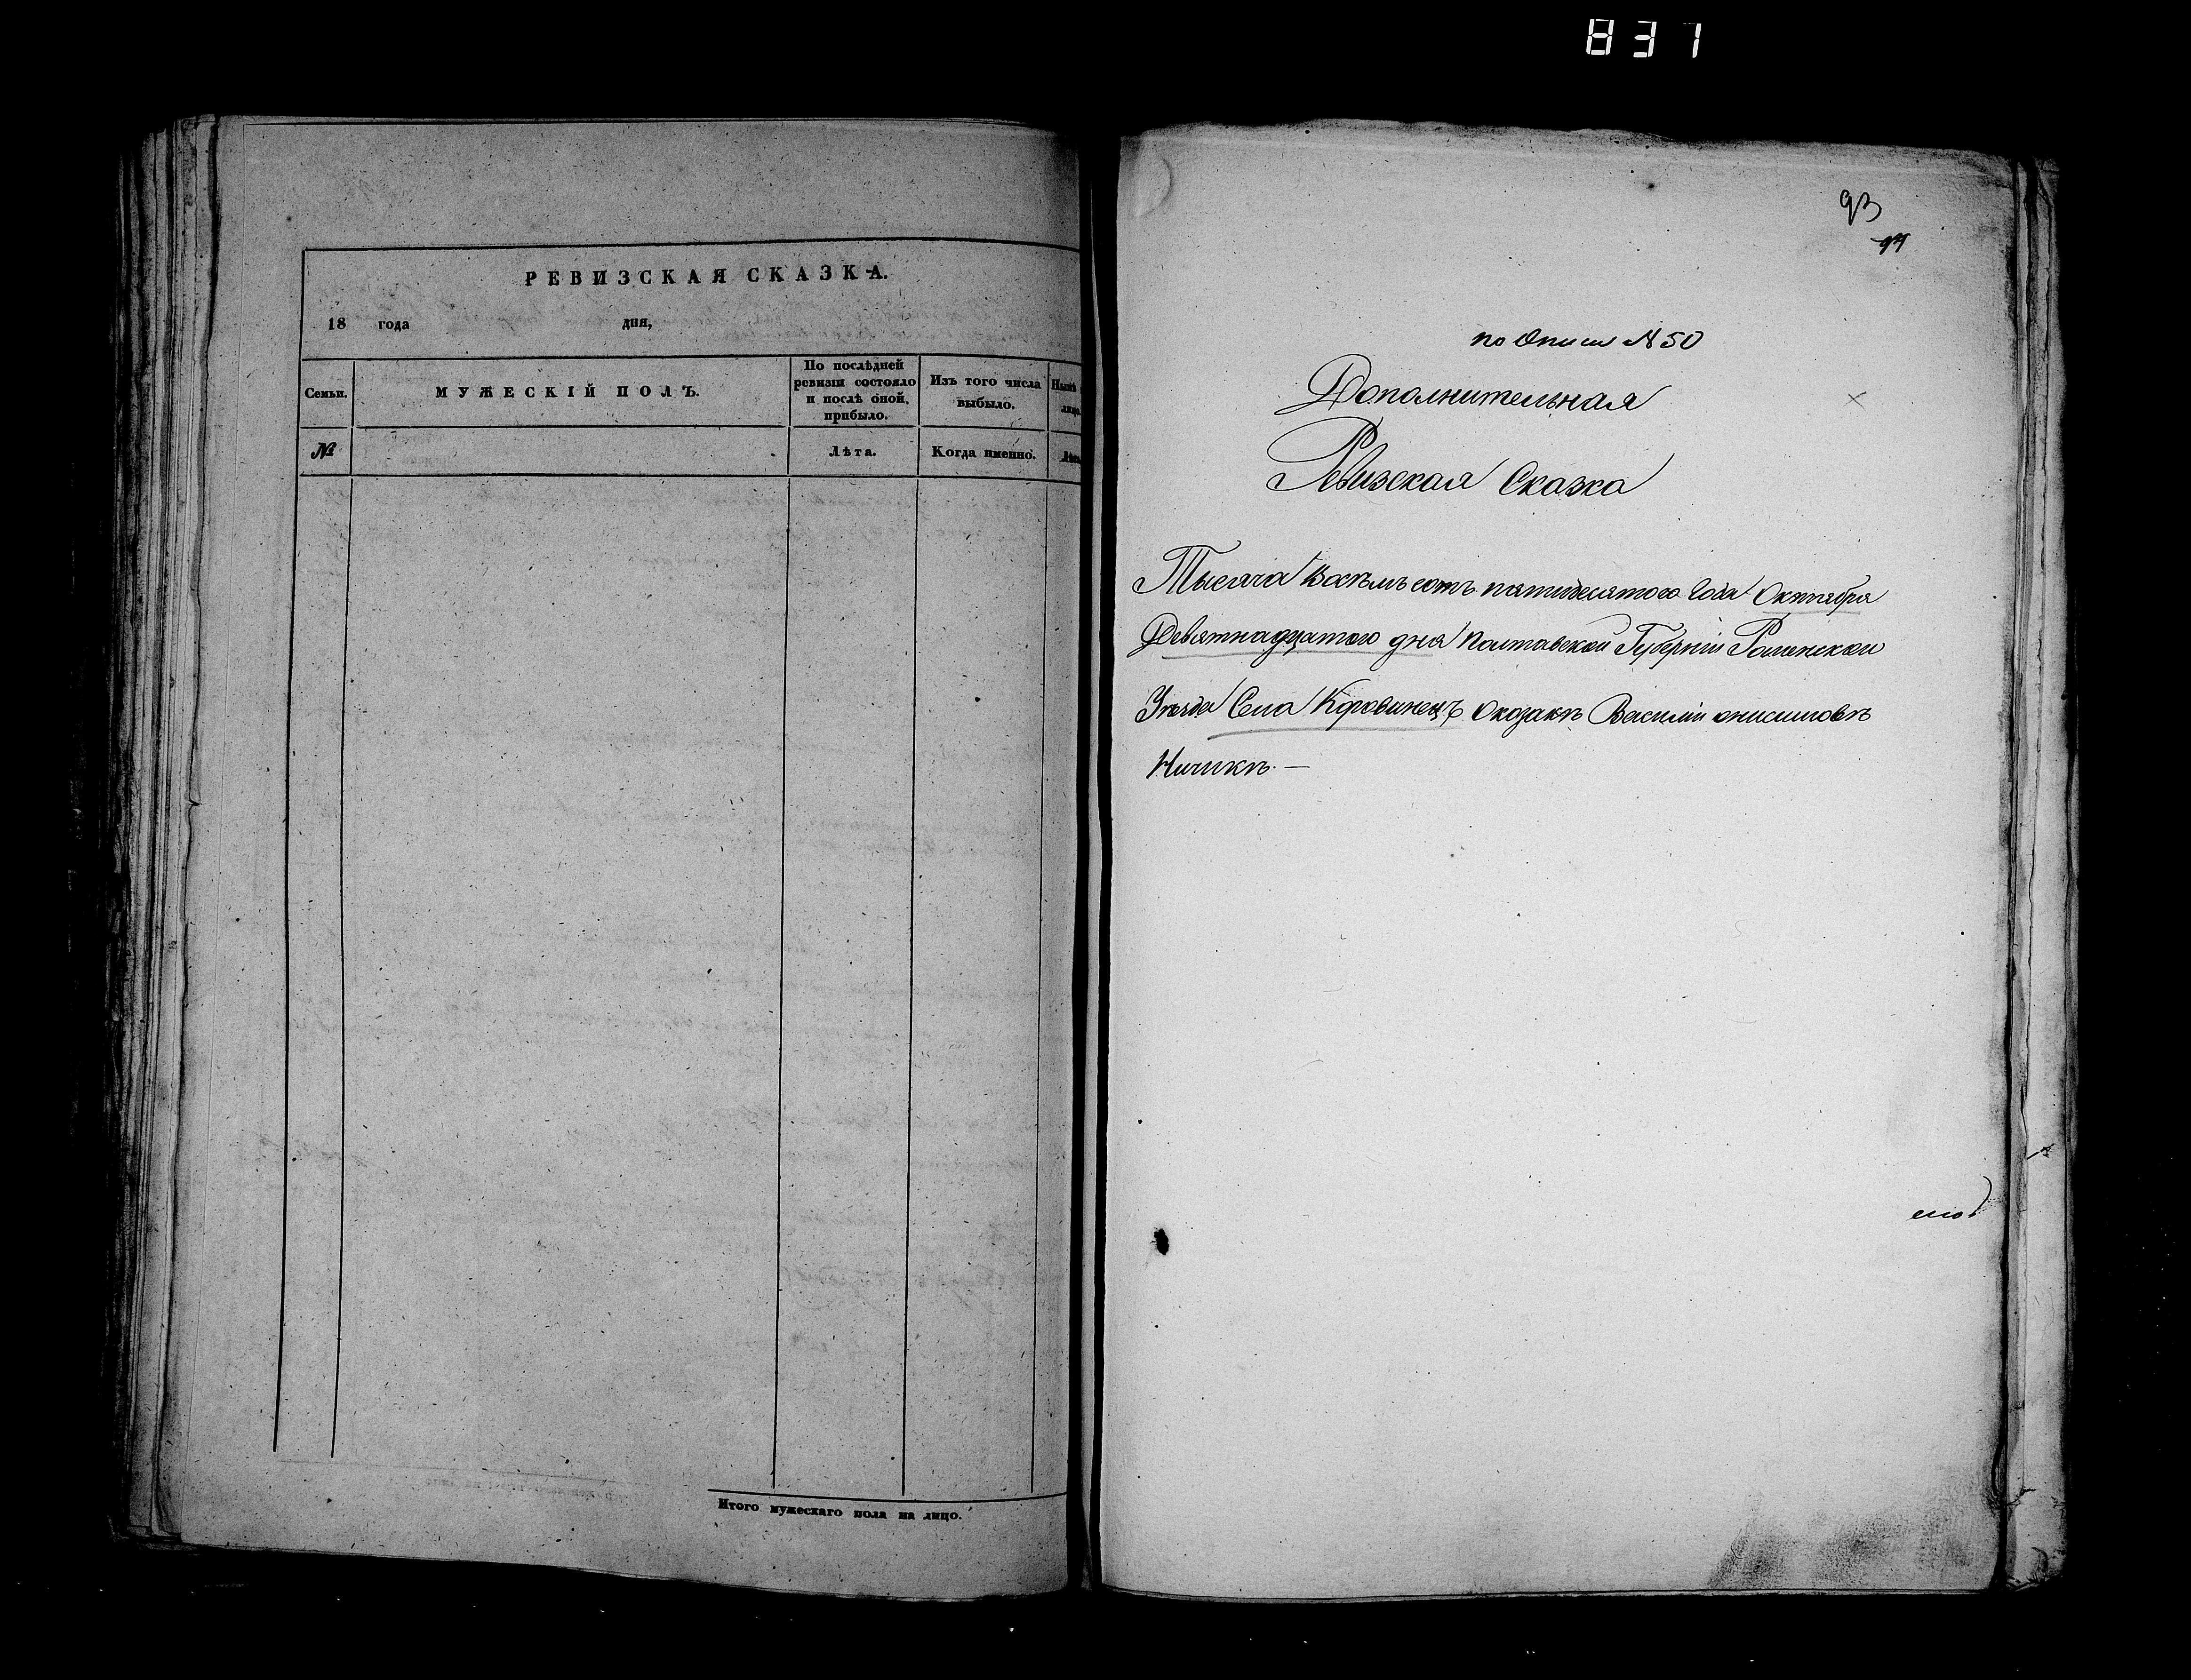 831
РЕВИЗСКАЯ СКАЗКА.
18 года дня,
Семьи.
МУЖЕСКІЙ ПОЛЪ.
По послѣдней
ревизіи состояло
и послѣ оной,
прибыло.
Изъ того числа
выбыло.
№
Лѣта.
Когда именно.
Итого мужескаго пола на лицо.
93
по Описи № 50
Дополнительная
Ревизская Сказка
Тысяча Восѣмъ сотъ пятидесятого Года Октября
Девятнадцатого дня Полтавской Губерніи Роменской
Уѣзда Села Коровинецъ Окозакѣ Василіи онисимовѣ